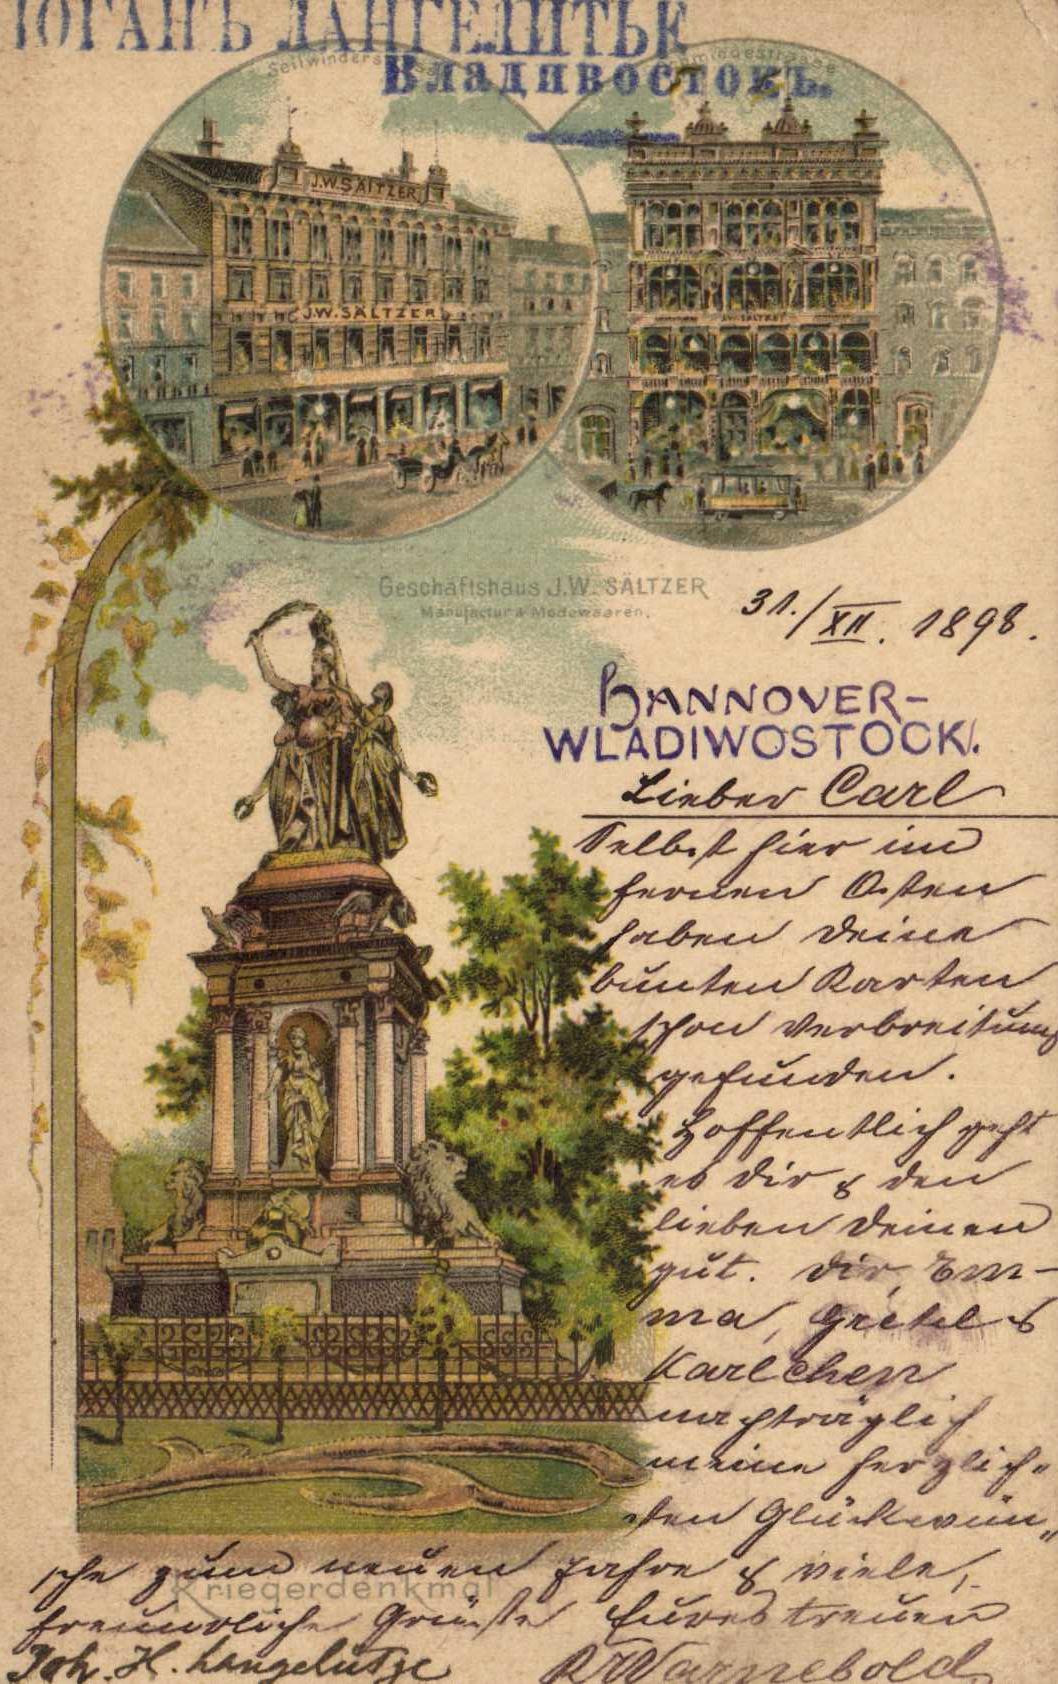 ІОГАНЪ ЛАНГЕЛИТЬЕ
Владивостокъ.
Seilwinders
Schmiedestrasse
J.W.SÄLTZER
J.W.SÄLTZER
Geschäftshaus J.W. SÄLTZER
Manufactur & Modewaaren.
31./XII. 1898.
HANNOVER-
WLADIWOSTOCK.
Lieber Carl
Selbst hier im
fernen Osten
haben Deine
bunten Karten
schon Verbreitung
gefunden.
Hoffentlich geht
es Dir & den
lieben Deinen
gut. Dir, Em-
ma, Gretel &
Karlchen
nachträglich
meine herzlich-
sten Glückwün-
sche zum neuen Jahre & viele
freundliche Grüsse Eures treuen
Joh. H. Langelütje
Warnebold
Kriegerdenkmal